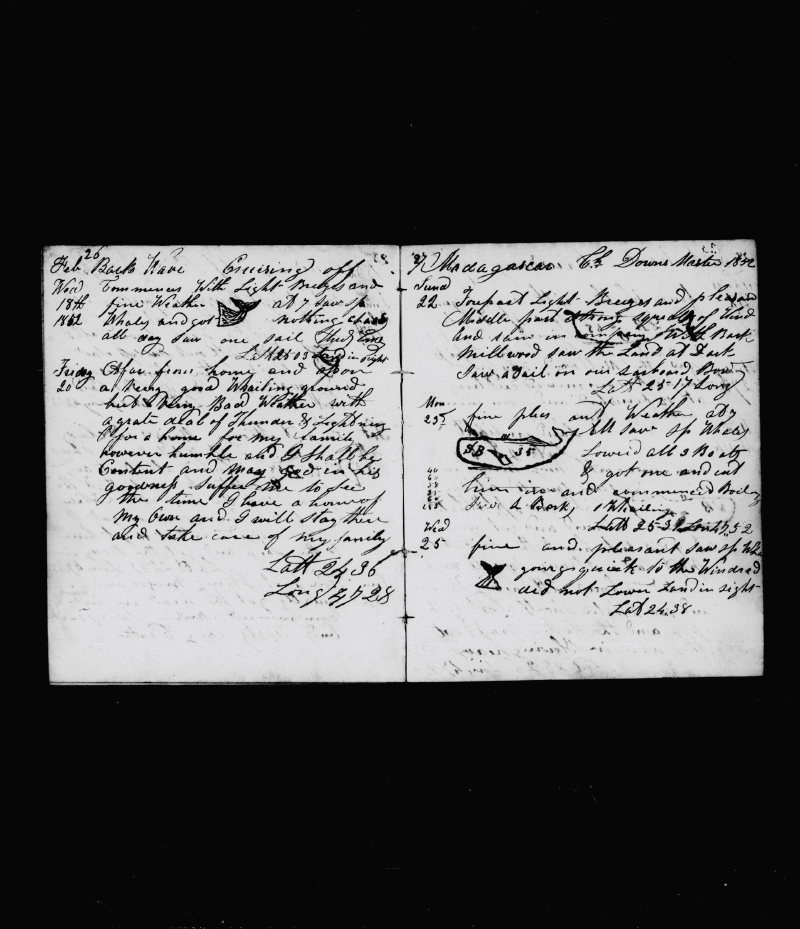 26
Feb Bark Wave Cruising off
Wed Commences With Light Breezes and
18th fine Weather at 7 Saw Sp
1862 Whales and got nothing chased
all day Saw one Sail
Latt 25 03 Land in sight
Friday Afar from home and upon
20 a very good Whaling ground
but a Very Baad Weather with
a grate deal of Thunder & Lightning
O for a home for my family
however humble and I Shall be
Content and may God in his
goodness Suffer me to See
the time I have a home of
My Own and I will Stay there
and take care of my family
Latt 24 36
Long 47 28
27 Madagascar Downs Master 1862
Sund
22 Fourpart Light Breezes and pleasant
Middle part Strong Squals of Wind
and rain in Company With Bark
Millwood saw the Land at Dark
Saw a Sail on our Larboard Bow
Latt 25 17 Long
Mon
23 fine ples and Weather at 7
AM Saw Sp Whales
S.B 35 Lowerd all 3 Boats
& got one and cut
him in and commenced Boiling
Saw a Bark, 1 Whaling
Latt 25 31 Long 47,52
Wed
25 fine and pleasant Saw Sp Whs
going quick to the Windward
did not Lower Land in sight
Lat 24.38